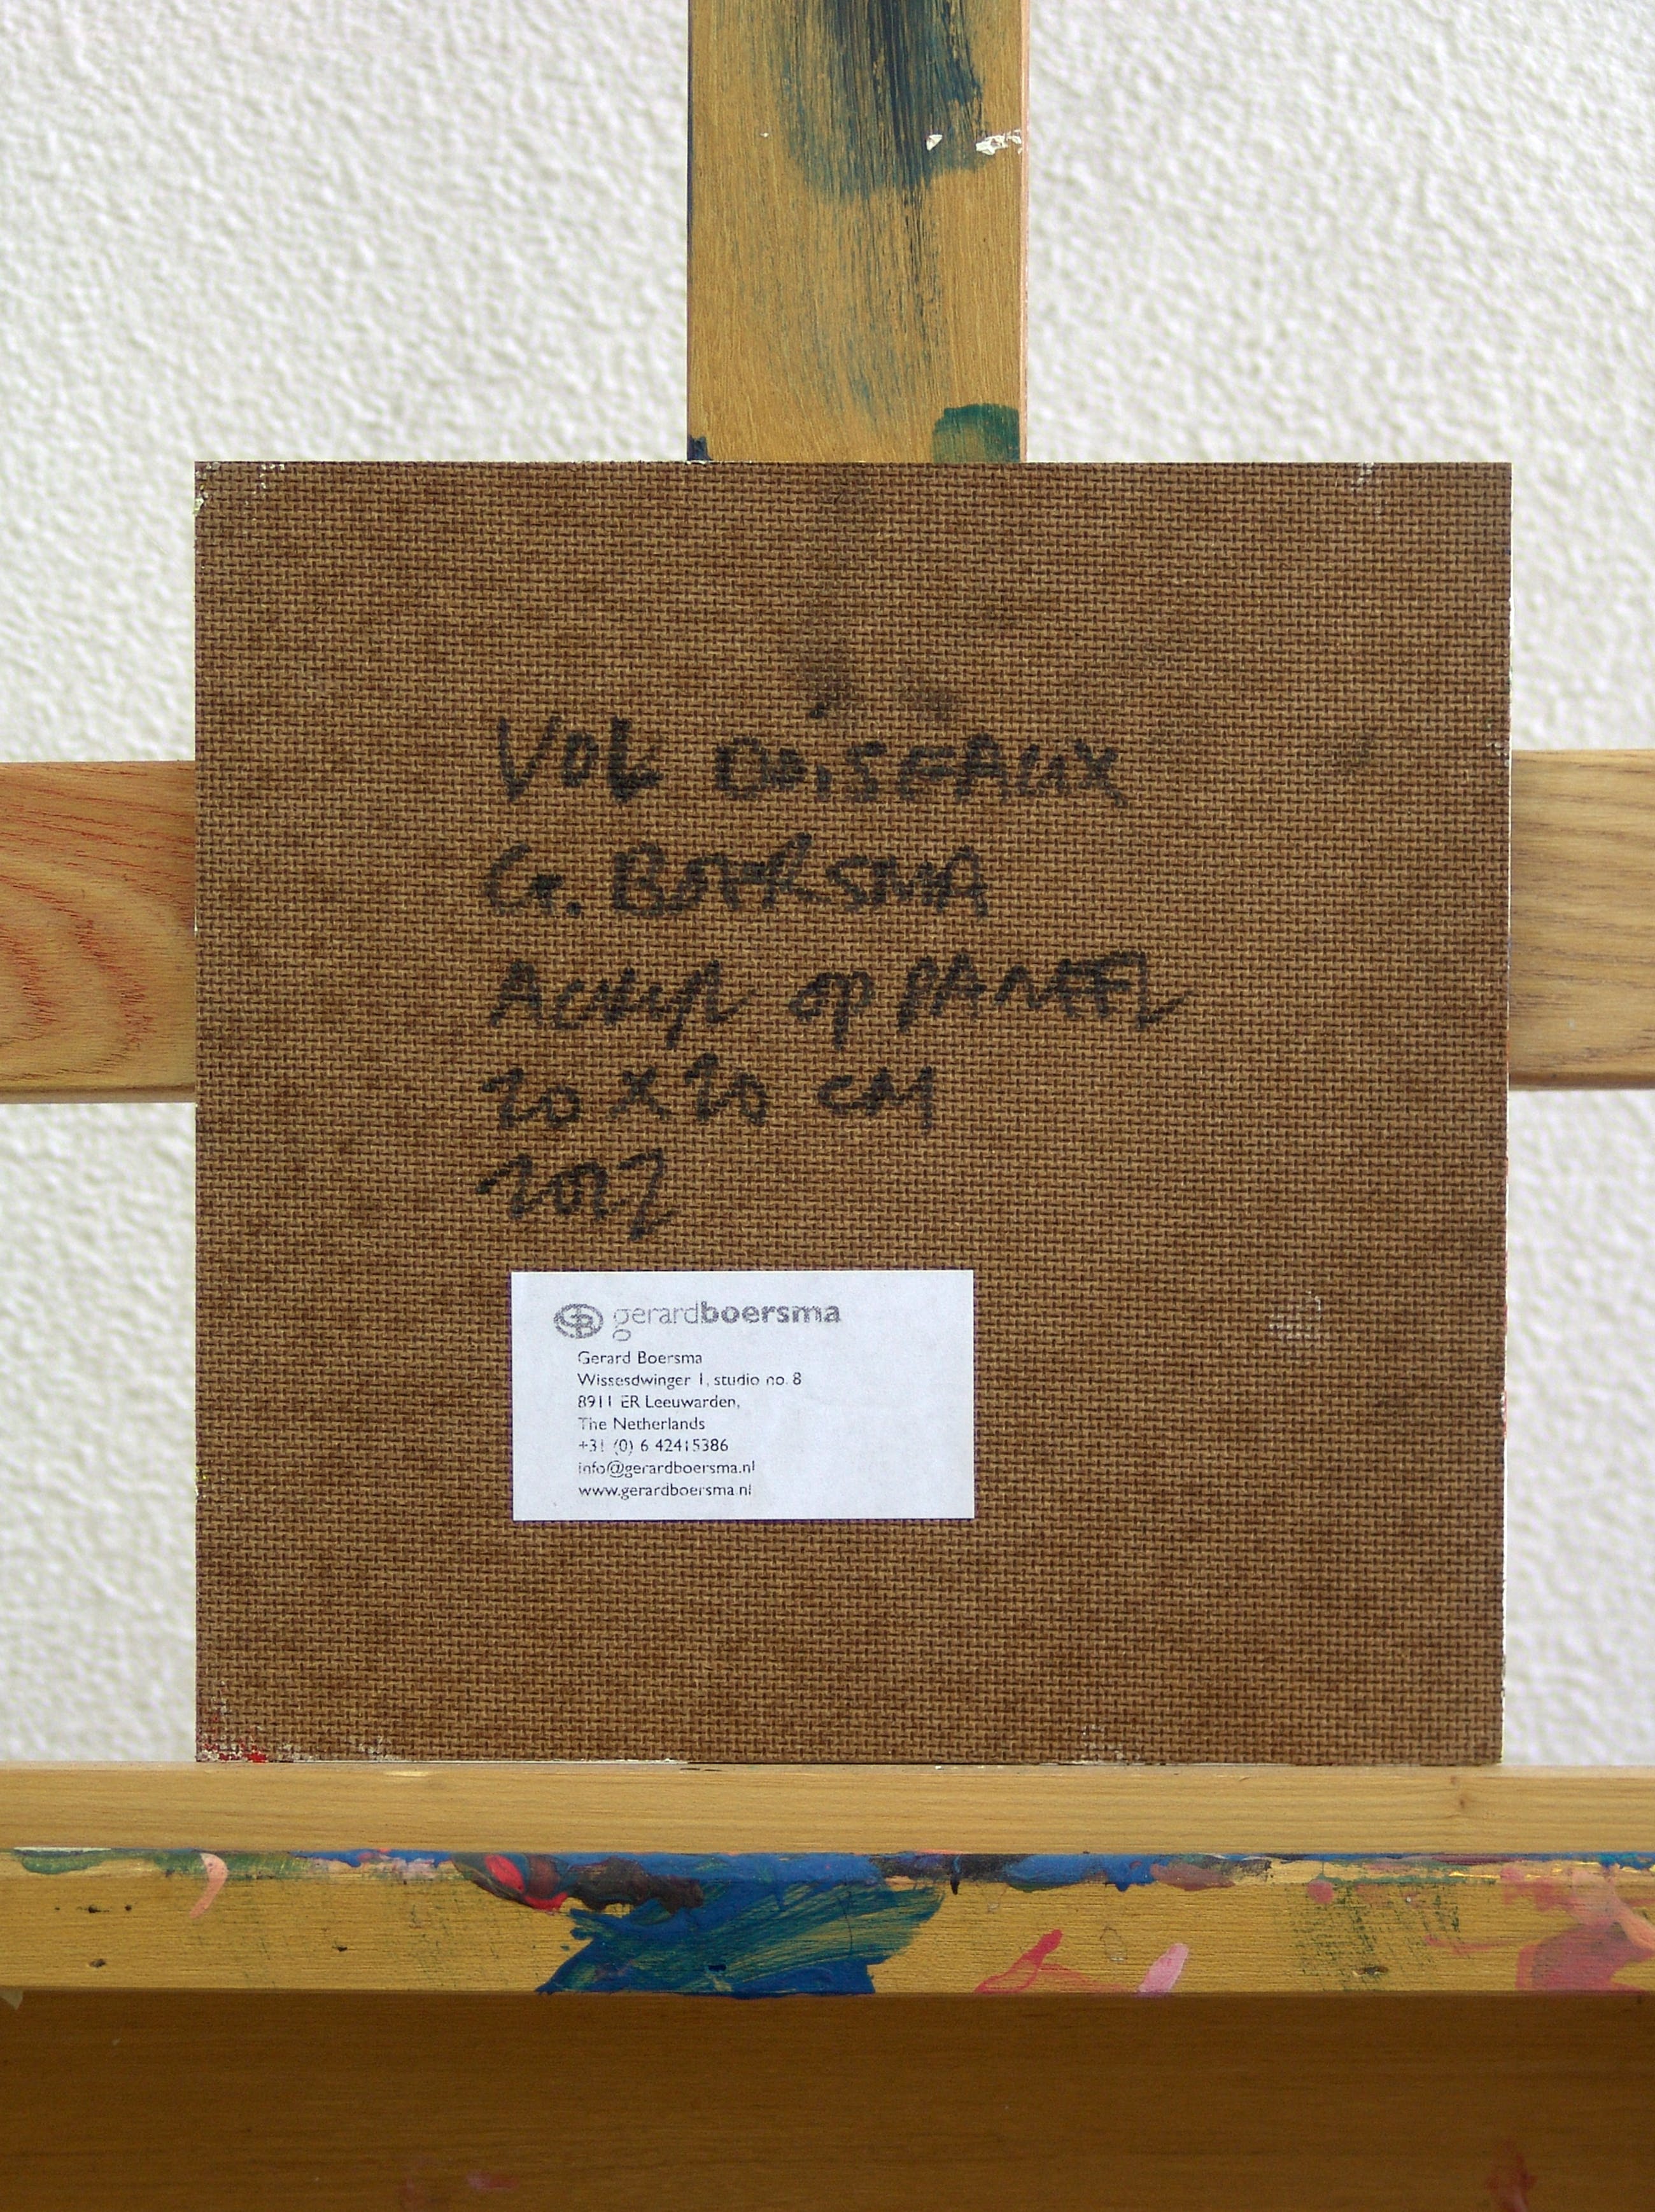 VOL D'OISEAUX
G. BOERSMA
ACRYL OP PANEEL
20 X 20 CM
2022
GB gerardboersma
Gerard Boersma
Wissesdwinger 1, studio no. 8
8911 ER Leeuwarden,
The Netherlands
+31 (0) 6 42415386
info@gerardboersma.nl
www.gerardboersma.nl